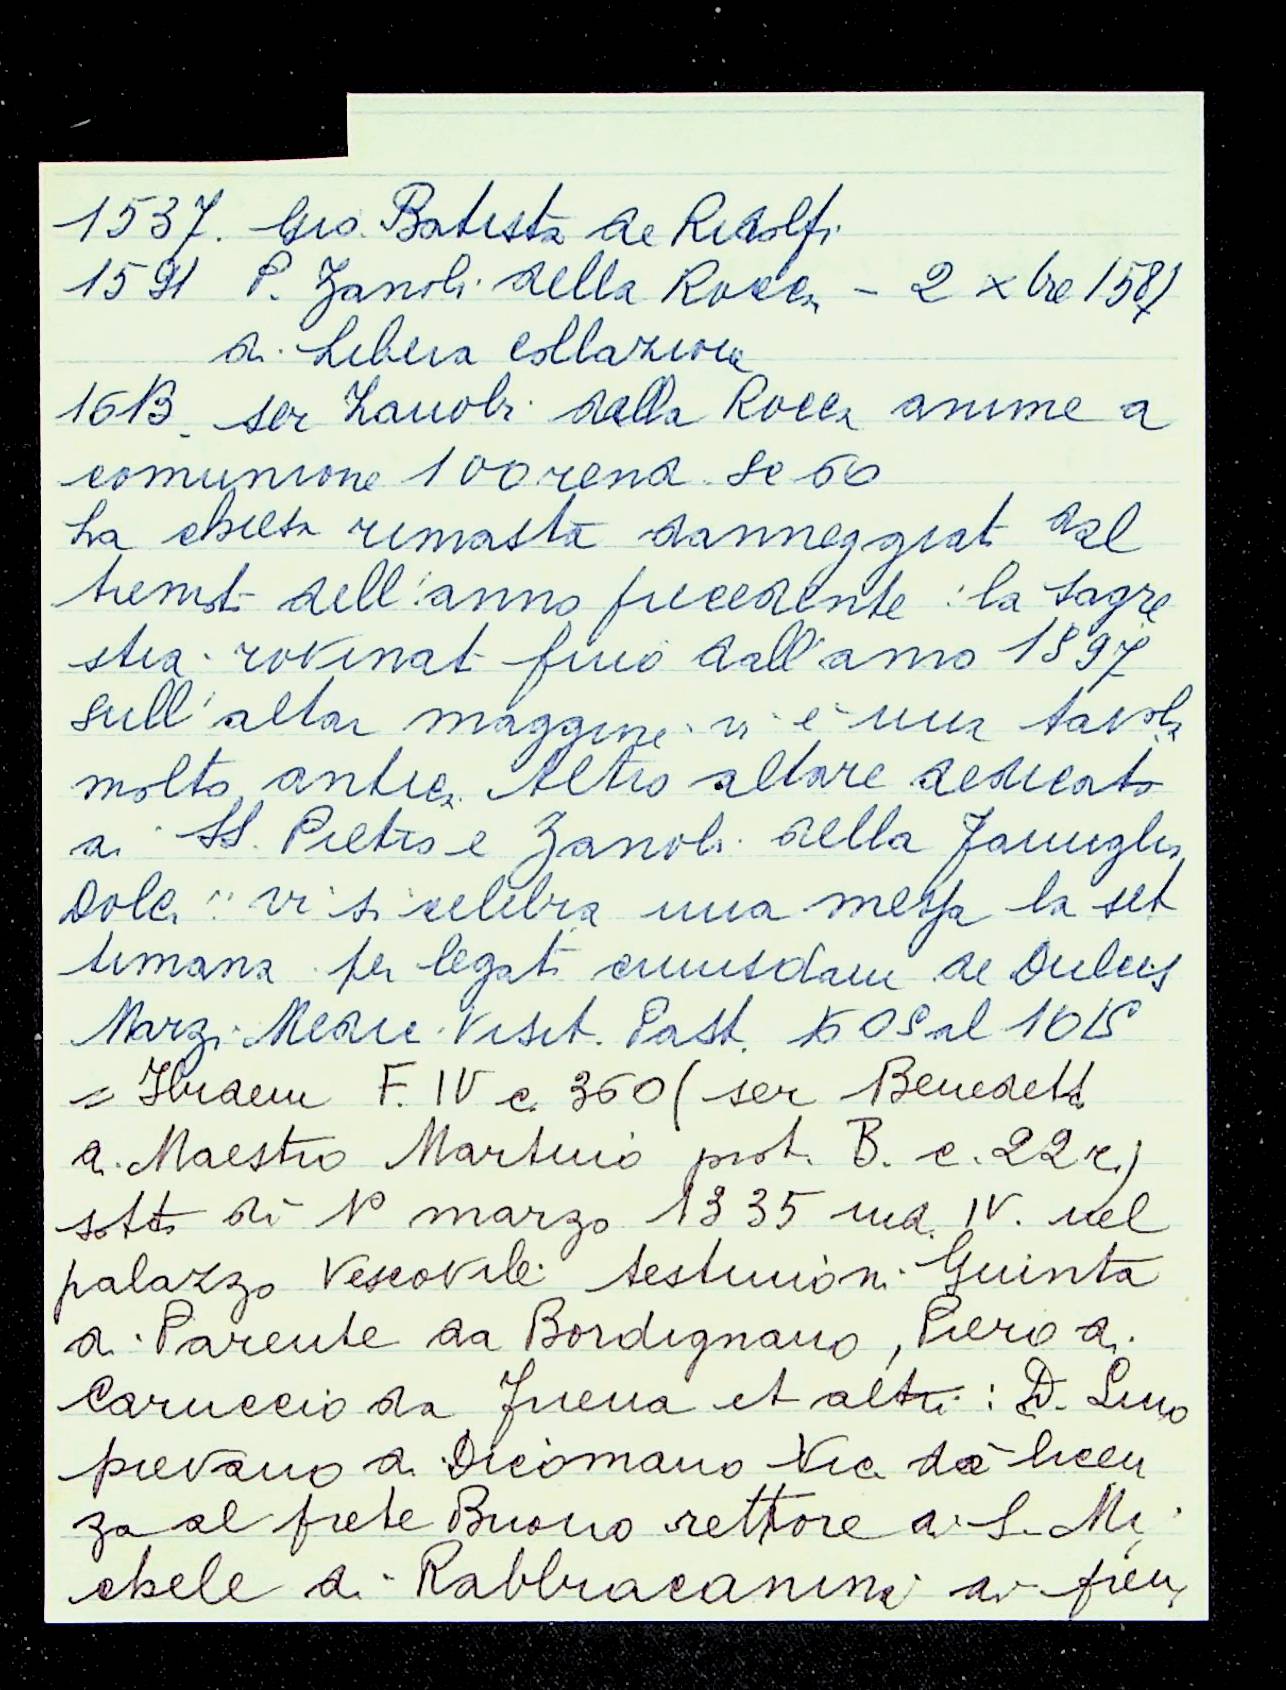 1537. Gio. Batista de Ridolfi
1591 P. Zanobi della Rocca - 2 xbre 1581
di libera collazione
1613. ser Zanobi della Rocca anime a
comunione 100 rend. sc 60
La chiesa rimasta danneggiat dal
tremot dell'anno precedente: la sagre
stia rovinat fino dall'anno 1597
sull'altar maggiore vi è una tavola
molto antica. Altro altare dedicato
ai SS. Pietro e Zanobi della famiglia
Dolci: vi si celebra una messa la set
timana per legati cuiusdam de Dulcis
Marzi Medic. Visit. Past. al
= Ibidem F. IV c. 360 (ser Benedett
di Maestro Martino prot. B. c. 22 r.)
sotto dì 1° marzo 1335 ind. IV. nel
palazzo Vescovile testimoni Guinta
di Parente da Bordignano, Piero di
Caruccio da et altri: D. Lino
pievano di Dicomano Vic. dà licen
za al prete Buono rettore di S. Mi
chele di Rabbiacanina di